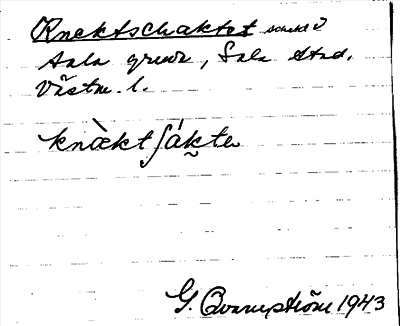 Knektschaktet schakt
Sala gruva, Sala stad.
Västm. l.
knὰkt∫ákte
G. Qvarnström 1943